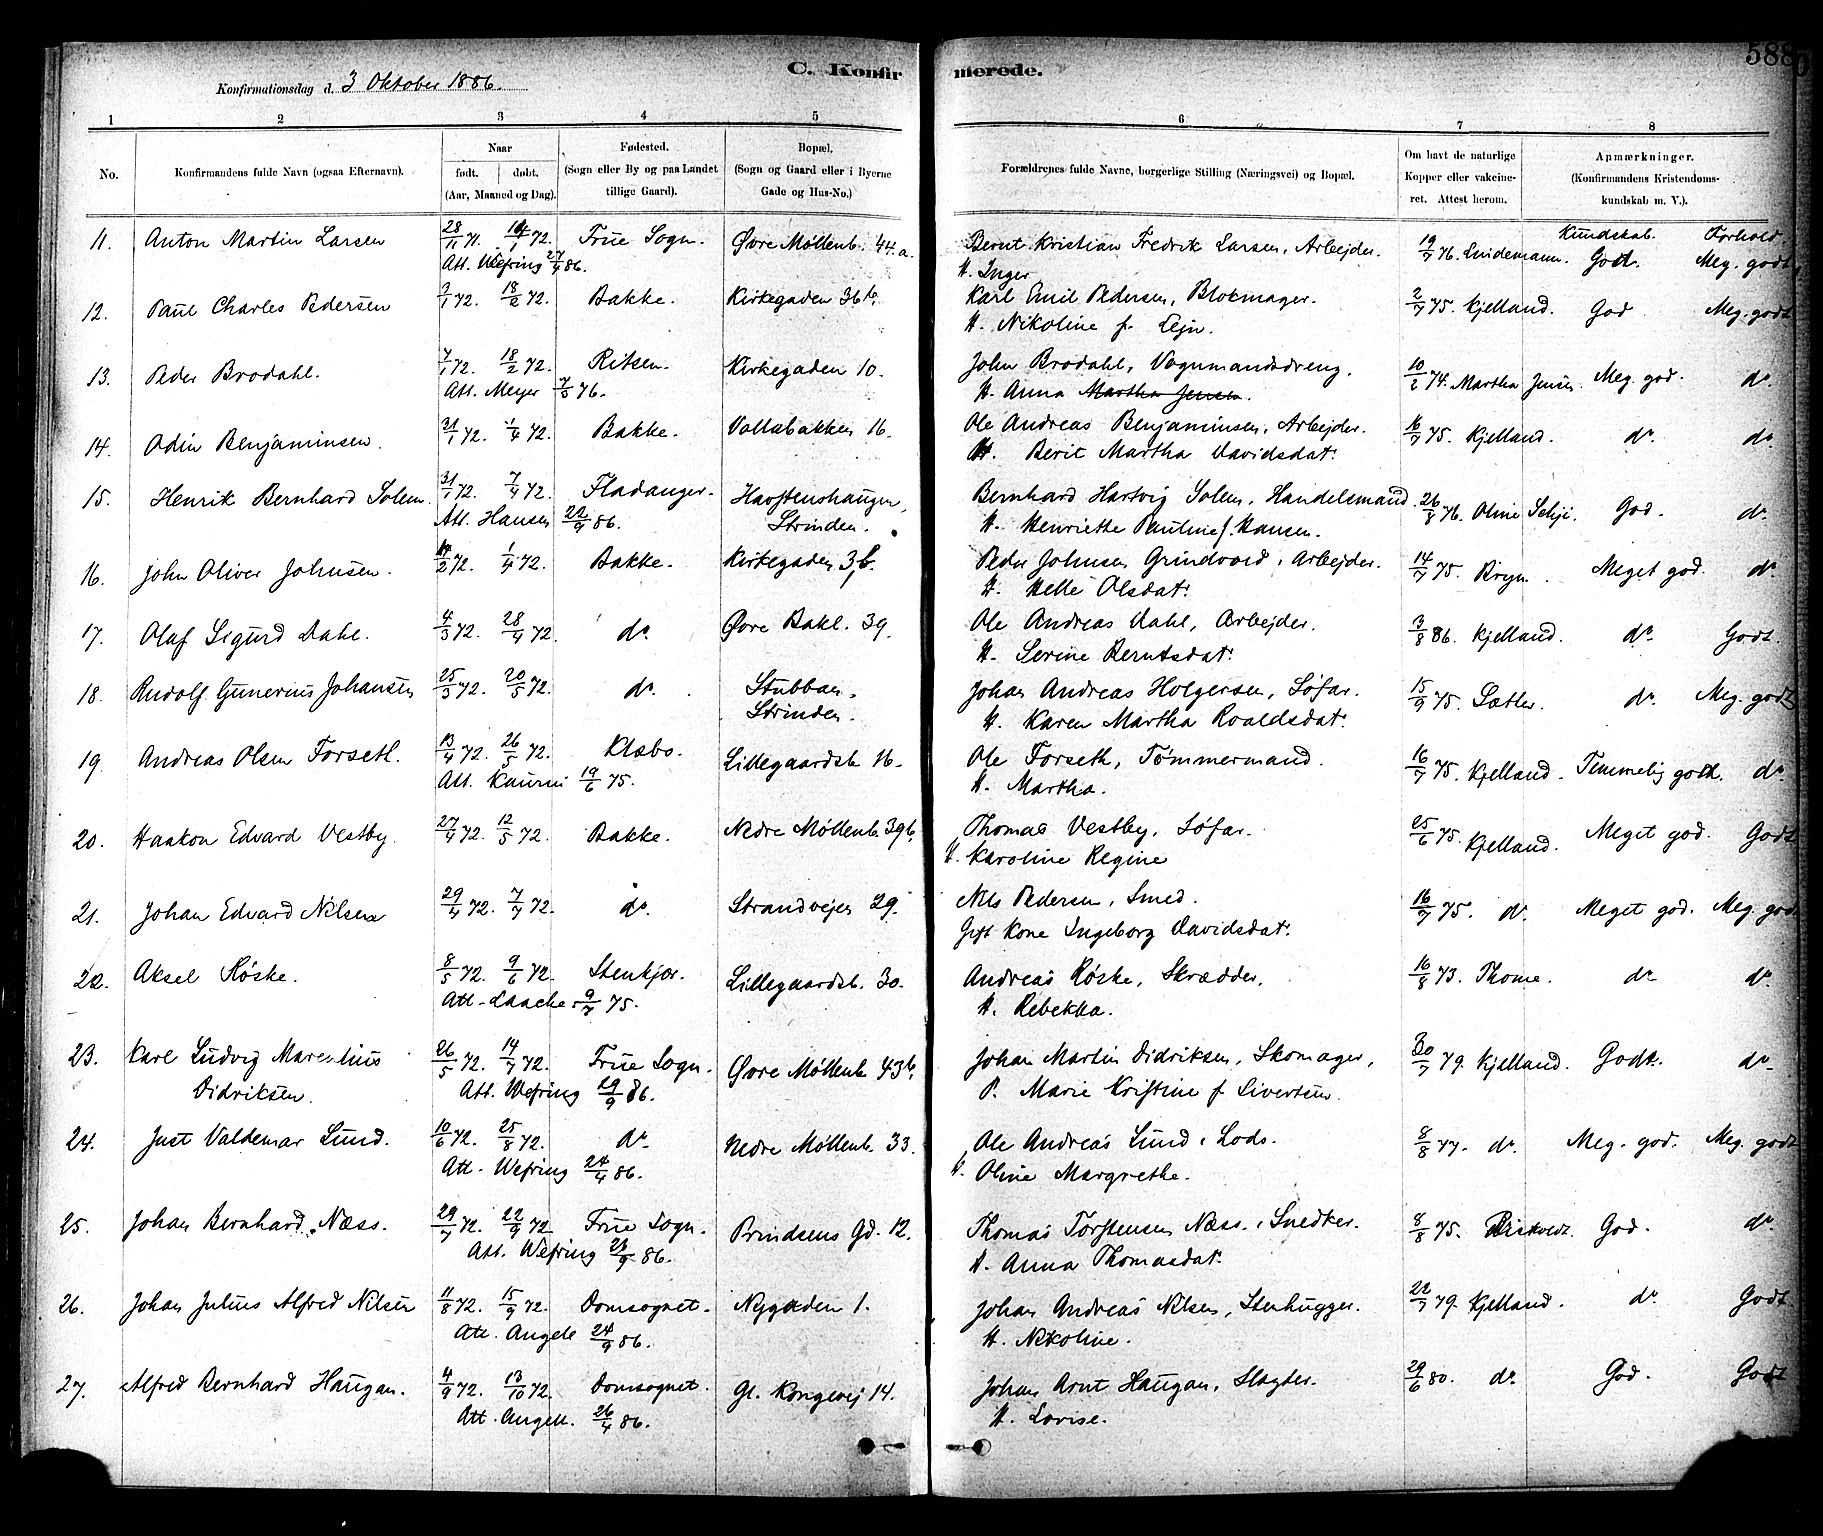 588
C. Konfirmerede.
Konfirmationsdag d. 3 Oktober 1886.
1 2 3 4 5 6 7 8
No. Konfirmandens fulde Navn (ogsaa Efternavn). Naar født. døbt. (Aar, Maaned og Dag). Fødested. (Sogn eller By og paa Landet tillige Gaard). Bopæl. (Sogn og Gaard eller i Byerne Gade og Hus-No.) Forældrenes fulde Navne, borgerlige Stilling (Næringsvei) og Bopæl. Om havt de naturlige Kopper eller vakcineret. Attest herom. Anmærkninger. (Konfirmandens Kristendomskundskab m. V.).
Kundskab. Forhold.
11. Anton Martin Larsen 28/11 71. 14/1 72. Frue Sogn. Øvre Møllenb. 44 a. Bernt Kristian Fredrik Larsen, Arbejder. 19/7 76. Lindemann. Godt. Meg. godt.
Att. Wefring 27/4 86. H. Inger
12. Paul Charles Pedersen 3/1 72. 18/2 72. Bakke. Kirkegaden 36 b. Karl Emil Pedersen, Blokmager. 2/7 75. Kjelland. God Meg. godt
H. Nikoline f. Lejn.
13. Peder Brodahl. 7/1 72. 18/2 72. Ritsen. Kirkegaden 10. John Brodahl, Vognmandsdreng. 10/2 74. Martha Jensen. Meg. god. do.
Att. Meyer 7/5 76. H. Anna Martha Jensen.
14. Odin Benjaminsen. 31/1 72. 1/4 72. Bakke. Voldsbakken 16. Ole Andreas Benjaminsen, Arbejder. 16/7 75. Kjelland. do. do.
H. Berit Martha Davidsdat.
15. Henrik Bernhard Solem. 31/1 72. 7/4 72. Fladanger. Havstenshaugen, Strinden. Bernhard Hartvig Solem, Handelsmand. 26/8 76. Oline Selji. God. do.
Att. Hansen 22/9 86. H. Henriette Pauline f. Hansen.
16. John Oliver Johnsen. 2 72. 1/4 72. Bakke. Kirkegaden 3 b. Peder Johnsen Grindvold, Arbejder. 14/7 75. Bryn. Meget god. do.
H. Mette Olsdat.
17. Olaf Sigurd Dahl. 4/3 72. 28/4 72. do. Øvre Bakl. 39. Ole Andreas Dahl, Arbejder. 3/8 86. Kjelland. do. Godt.
H. Serine Berntsdat.
18. Rudolf Gunerius Johansen 25/3 72. 20/5 72. do. Stubban, Strinden. Johan Andreas Holgersen, Søfar. 15/9 75. Sætler. do. Meg. godt
H. Karen Martha Roaldsdat.
19. Andreas Olsen Forseth. 13/4 72. 26/5 72. Klæbo. Lillegaardsb. 16. Ole Forseth, Tømmermand. 16/7 75. Kjelland. Temmelig godt. do.
Att. Kaurin 19/6 75. H. Martha.
20. Haakon Edvard Vestby. 27/4 72. 12/5 72. Bakke. Nedre Møllenb. 39 b. Thomas Vestby, Søfar. 25/6 75. Kjelland. Meget god. Godt
H. Karoline Regine
21. Johan Edvard Nilsen 29/4 72. 7/7 72. do. Strandvejen 29. Nils Pedersen, Smed. 16/7 75. do. Meget god. Meg. godt
Gift Kone Ingeborg Davidsdat.
22. Aksel Røske. 8/5 72. 9/6 72. Stenkjær. Lillegaardsb. 30. Andreas Røske, Skrædder. 16/8 73. Thome. do. do.
Att. Laache 9/7 75. H. Rebekka.
23. Karl Ludvig Marentius Didriksen. 26/5 72. 14/7 72. Frue Sogn. Øvre Møllenb. 43 b. Johan Martin Didriksen, Skomager, 30/7 79. Kjelland. Godt. do.
Att. Wefring 19/9 86. P. Marie Kristine f. Sivertsen.
24. Just Valdemar Lund. 10/6 72. 25/8 72. do. Nedre Møllenb. 33. Ole Andreas Lund, Lods. 8/8 77. do. Meg. god. Meg. godt
Att. Wefring 24/4 86. H. Oline Margrethe.
25. Johan Bernhard Næss. 29/7 72. 22/9 72 Frue Sogn. Prindsens Gd. 12. Thomas Torstensen Næss, Snedker. 8/8 75. God. do.
Att. Wefring 23/9 86. H. Anna Thomasdat.
26. Johan Julius Alfred Nilsen 11/8 72. 15/9 72. Domsognet. Nygaden 1. Johan Andreas Nilsen, Stenhugger. 22/7 79. Kjelland. do. Godt
Att. Angell 24/9 86. H. Nikoline.
27. Alfred Bernhard Haugan. 4/9 72. 13/10 72. Domsognet. Gl. Kongevej 14. Johan Arnt Haugan, Slagter. 29/6 80. do. God. Godt
Att. Angell. 26/4 86. H. Lovise.